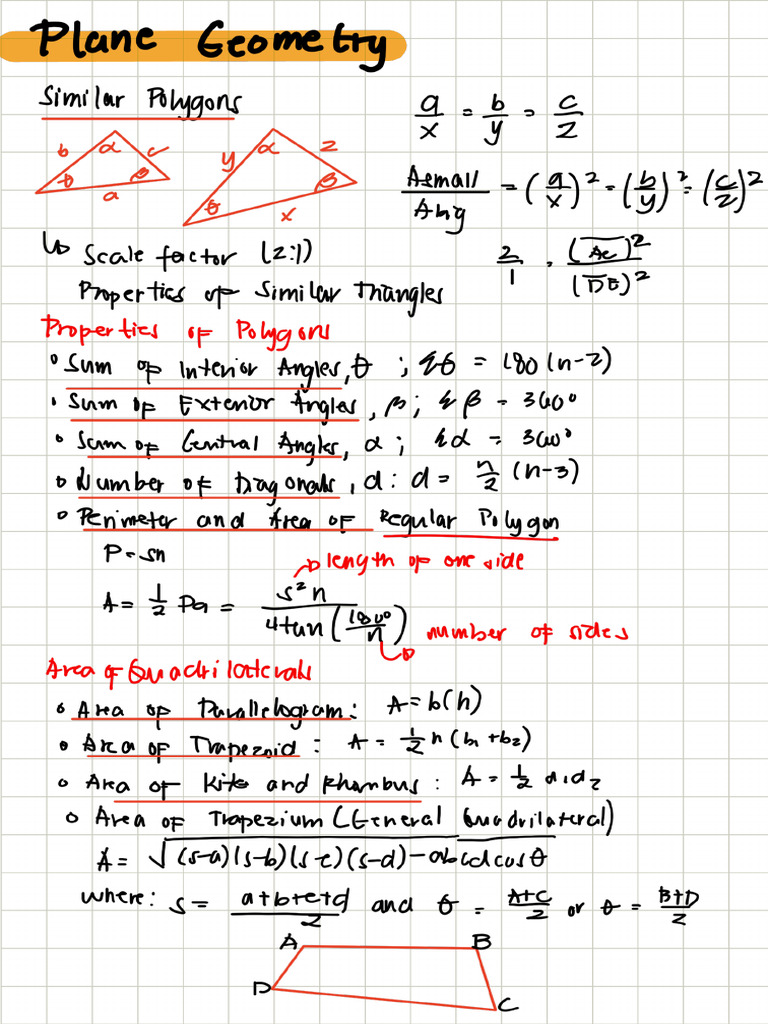 Plane Geometry
Similar Polygons
a/x = b/y = c/z
b α c θ β a
y α z θ β x
Asmall/Abig = (a/x)² = (b/y)² = (c/z)²
↳ Scale factor (2:1)
2/1 = (AC)²/(DE)²
Properties of Similar Triangles
Properties of Polygons
• Sum of Interior Angles, θ ; Σθ = 180(n-2)
• Sum of Exterior Angles, β; Σβ = 360°
• Sum of Central Angles, α; Σα = 360°
• Number of Diagonals, d: d = n/2 (n-3)
• Perimeter and Area of Regular Polygon
P = sn
→ length of one side
A = 1/2 Pa = s²n / 4tan(180°/n)
→ number of sides
Area of Quadrilaterals
• Area of Parallelogram: A = b(h)
• Area of Trapezoid: A = 1/2 h(b₁+b₂)
• Area of Kite and Rhombus: A = 1/2 d₁d₂
• Area of Trapezium (General Quadrilateral)
A = √(s-a)(s-b)(s-c)(s-d)-abcdcosθ
where: s = a+b+c+d/2 and θ = A+C/2 or θ = B+D/2
A B
D C